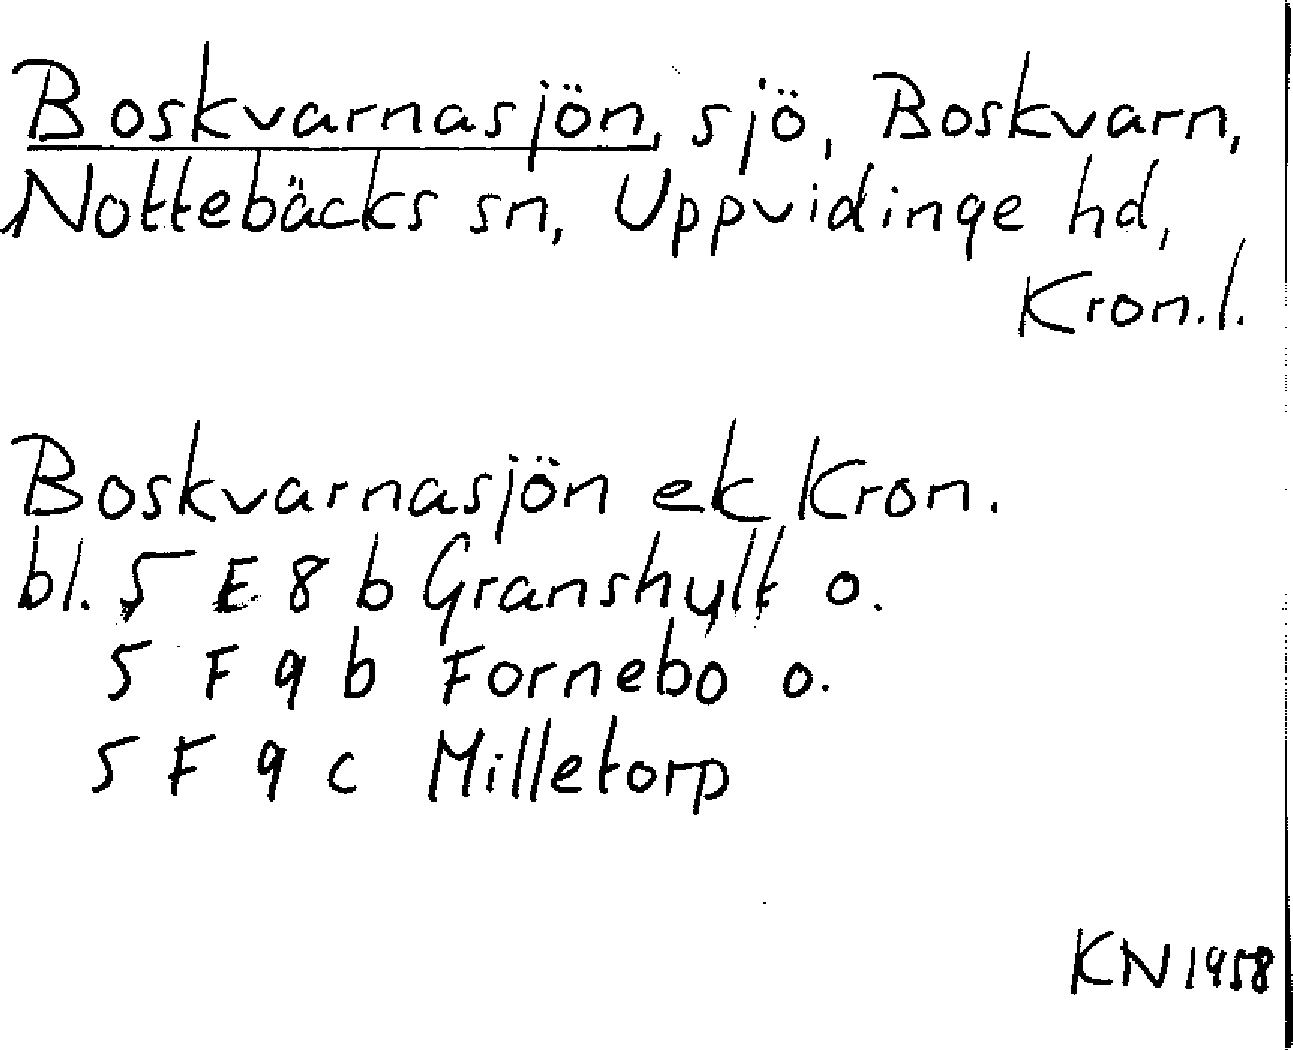 Boskvarnasjön, sjö, Boskvarn,
Nottebäcks sn, Uppvidinge hd,
Kron.l.
Boskvarnasjön ek Kron.
bl. 5 E 8 b Granshylt o.
5 F 9 b Fornebo o.
5 F 9 c Milletorp
KN 1958